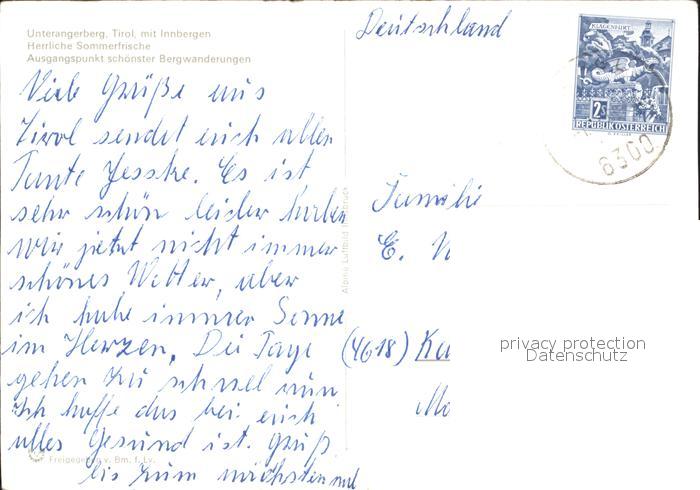 Unterangerberg, Tirol, mit Innbergen
Herrliche Sommerfrische
Ausgangspunkt schönster Bergwanderungen
Viele Grüße aus
Tirol sendet euch allen
Tante Jesske. Es ist
sehr schön leider haben
wir jetzt nicht immer
schönes Wetter, aber
ich habe immer Sonne
im Herzen. Die Tage
gehen zu schnel nun
Ich hoffe das bei euch
alles Gesund ist. Gruß
bis zum nächsten mal
Freigegeben v. Bm. f. Lv.
Alpine Luftbild Innsbruck
Deutschland
KLAGENFURT
2S
REPUBLIK ÖSTERREICH
6300
Familie
E.
(4618) Ka
privacy protection
Datenschutz